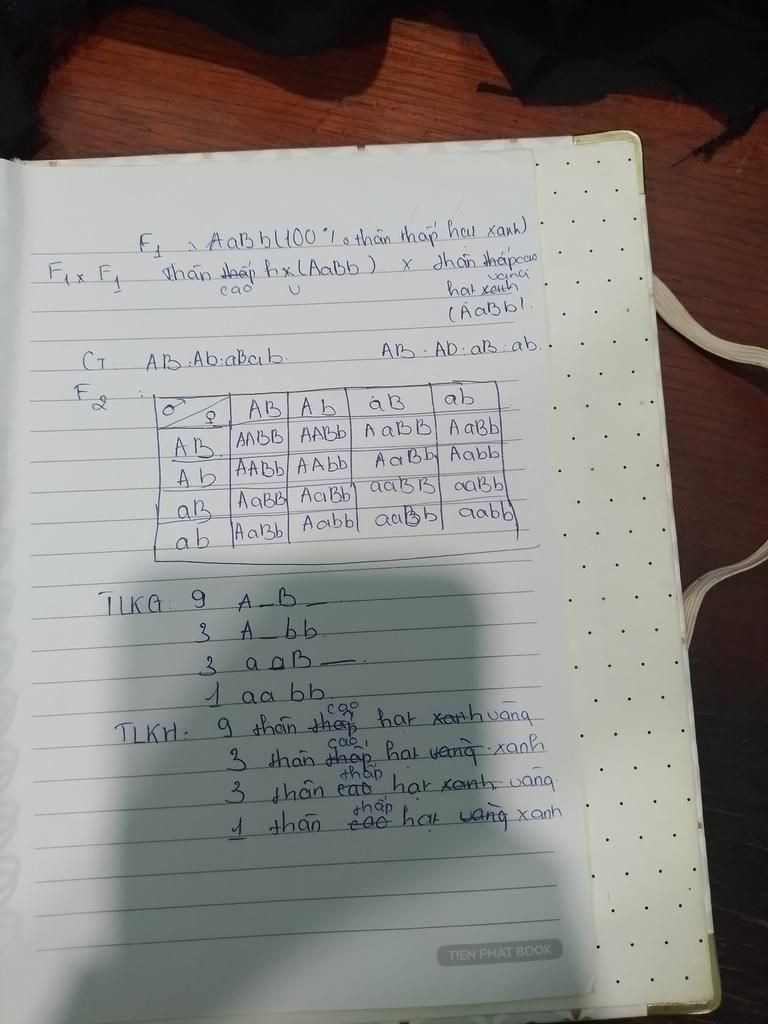 F1 : AaBb (100% thân thấp hạt xanh)
F1 x F1 thân thấp hx (AaBb) x thân thấp cao
cao v vàng
hạt xanh
(AaBb).
G: AB:Ab:aB:ab. AB:Ab:aB:ab.
F2 :
♂ ♀ AB Ab aB ab
AB AABB AABb AaBB AaBb
Ab AABb AAbb AaBb Aabb
aB AaBB AaBb aaBB aaBb
ab AaBb Aabb aaBb aabb
TLKG: 9 A_B_
3 A_bb
3 aaB_.
1 aabb
cao
TLKH: 9 thân thấp hạt xanh vàng
cao
3 thân thấp, hạt vàng xanh
thấp
3 thân cao hạt xanh vàng.
thấp
1 thân cao hạt vàng xanh
TIEN PHAT BOOK